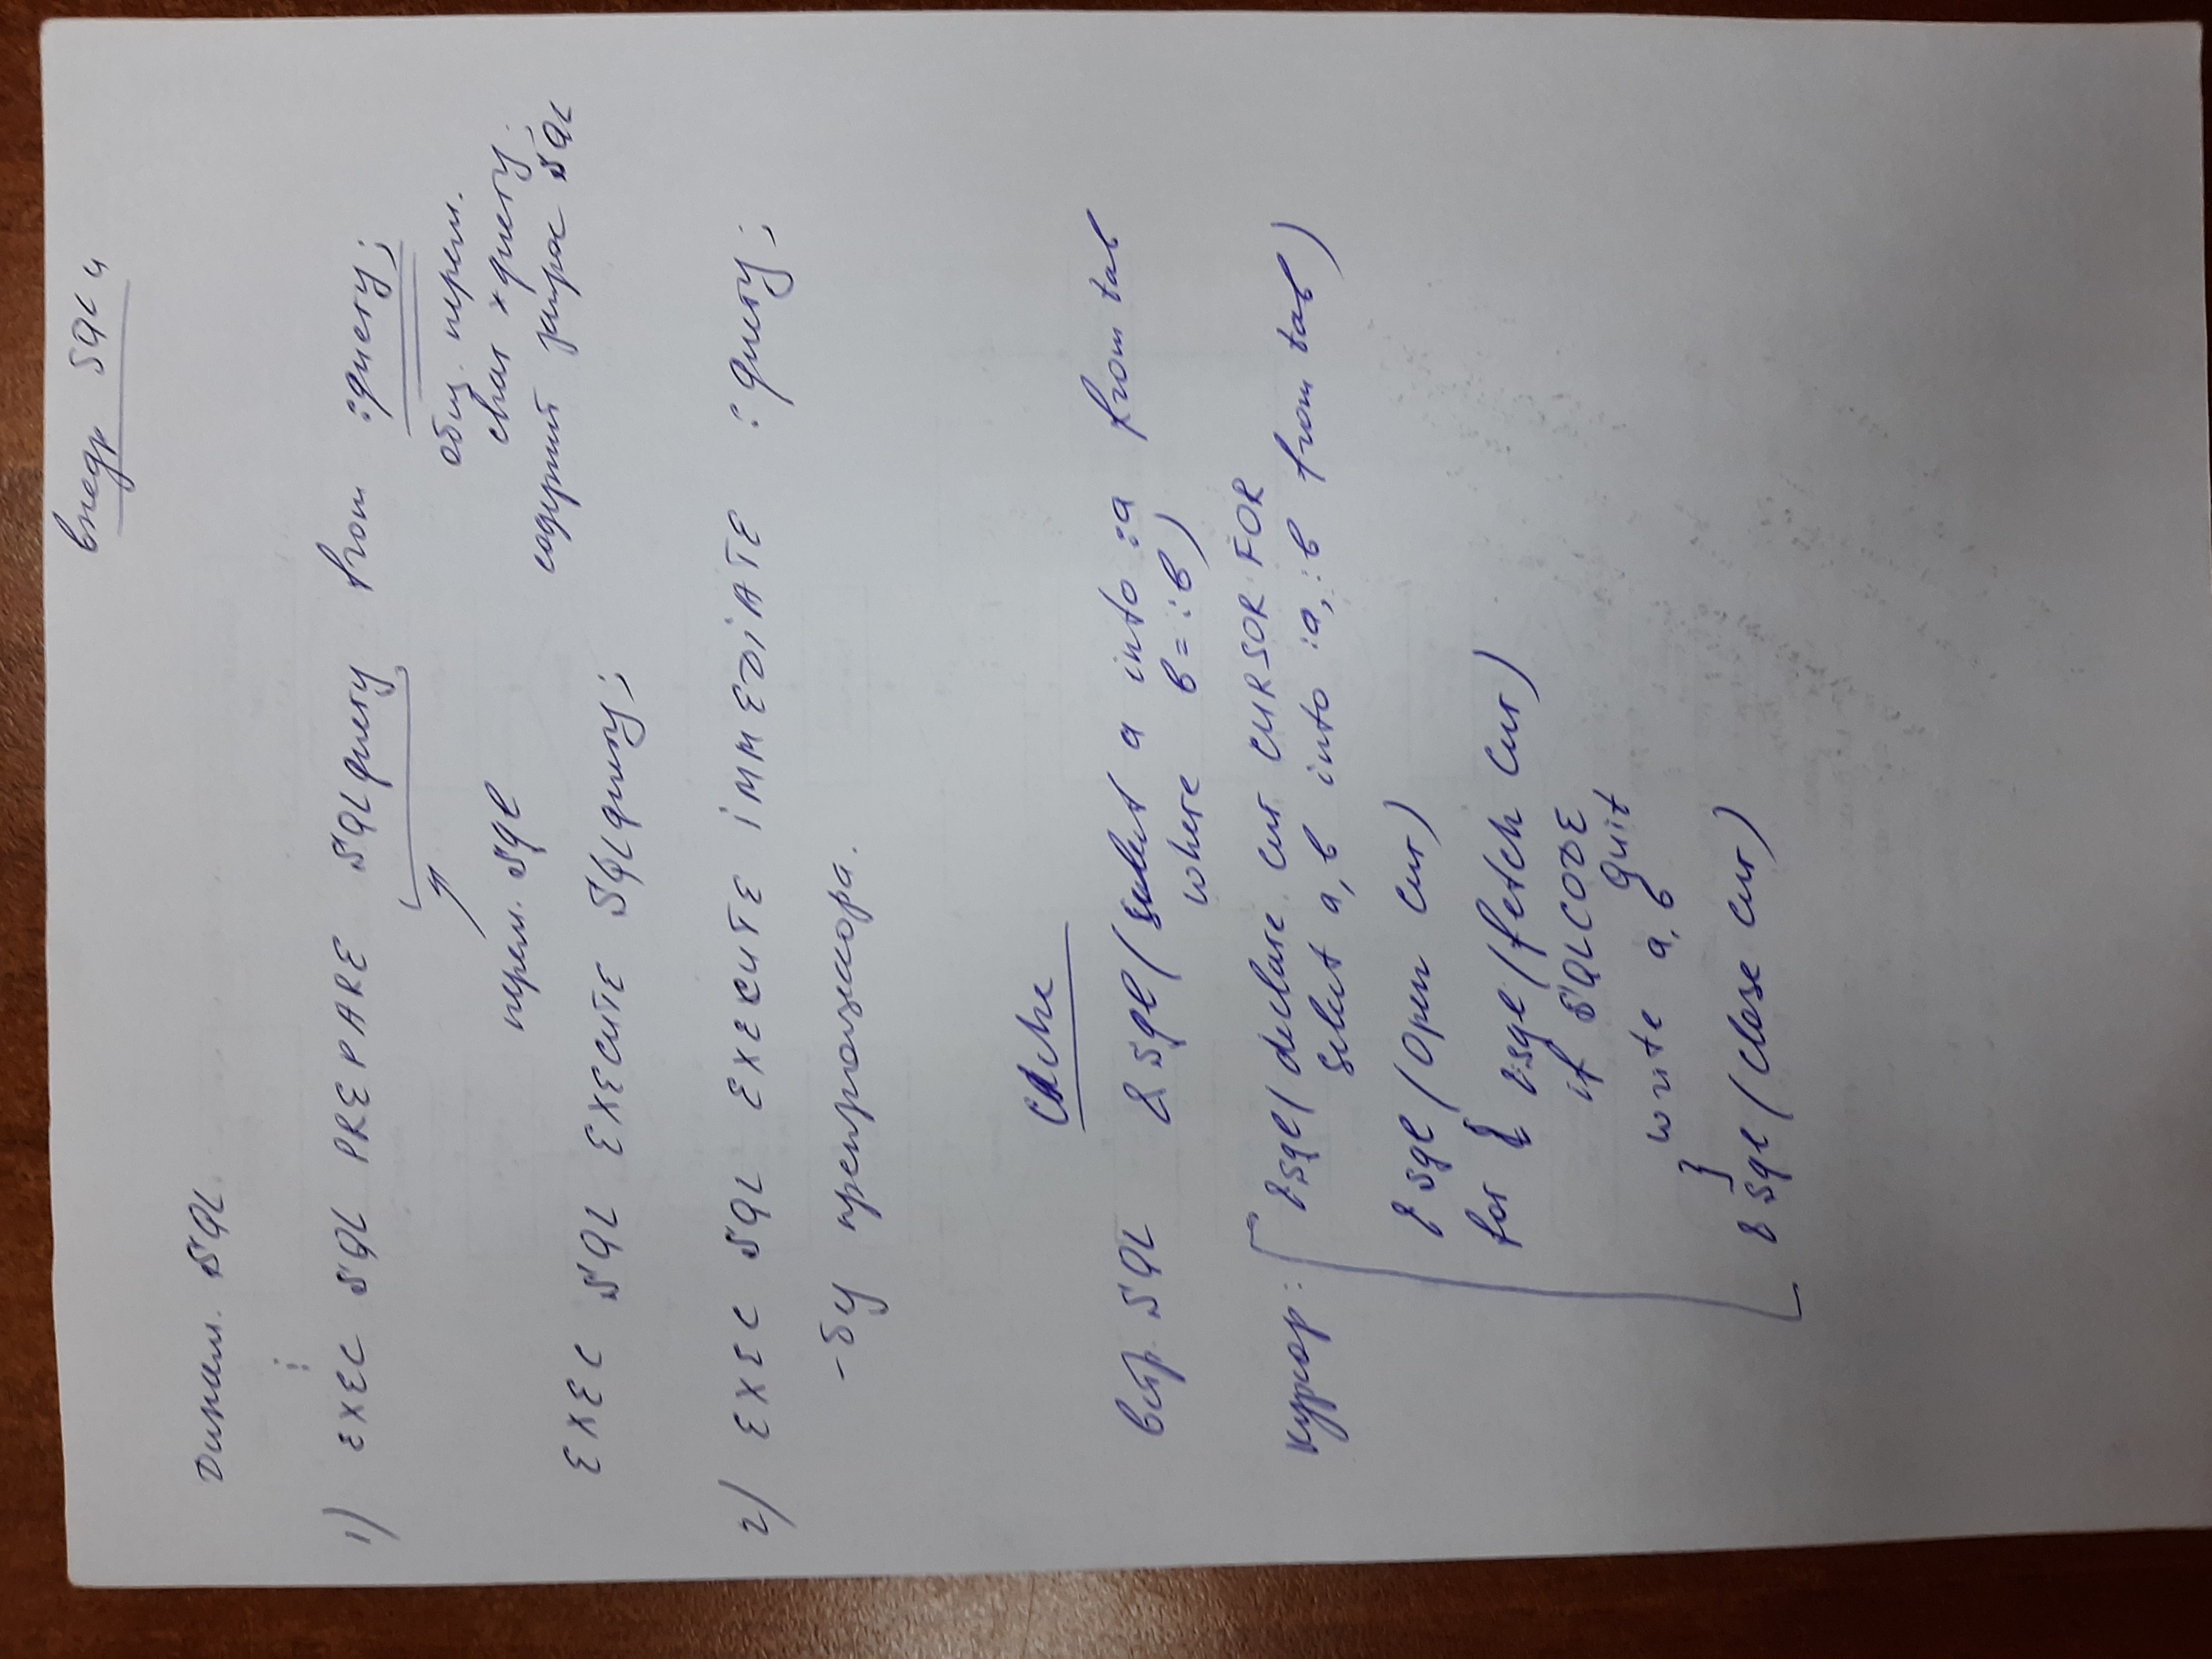 внедр SQL 4
Динам. SQL
⋮
1) EXEC SQL PREPARE SQLquery from :query;
общ. перем.
char *query;
перем. Sql
содержит запрос SQL
EXEC SQL EXECUTE SQLquery;
2) EXEC SQL EXECUTE IMMEDIATE :query;
препроцессора.
Cache
встр. SQL &sql(select a into :a from tab
where b=:b)
курсор: &sql(declare cur CURSOR FOR
select a,b into :a, :b from tab)
&sql(open cur)
for { &sql(fetch cur)
if SQLCODE
quit
write a, b
}
&sql(close cur)